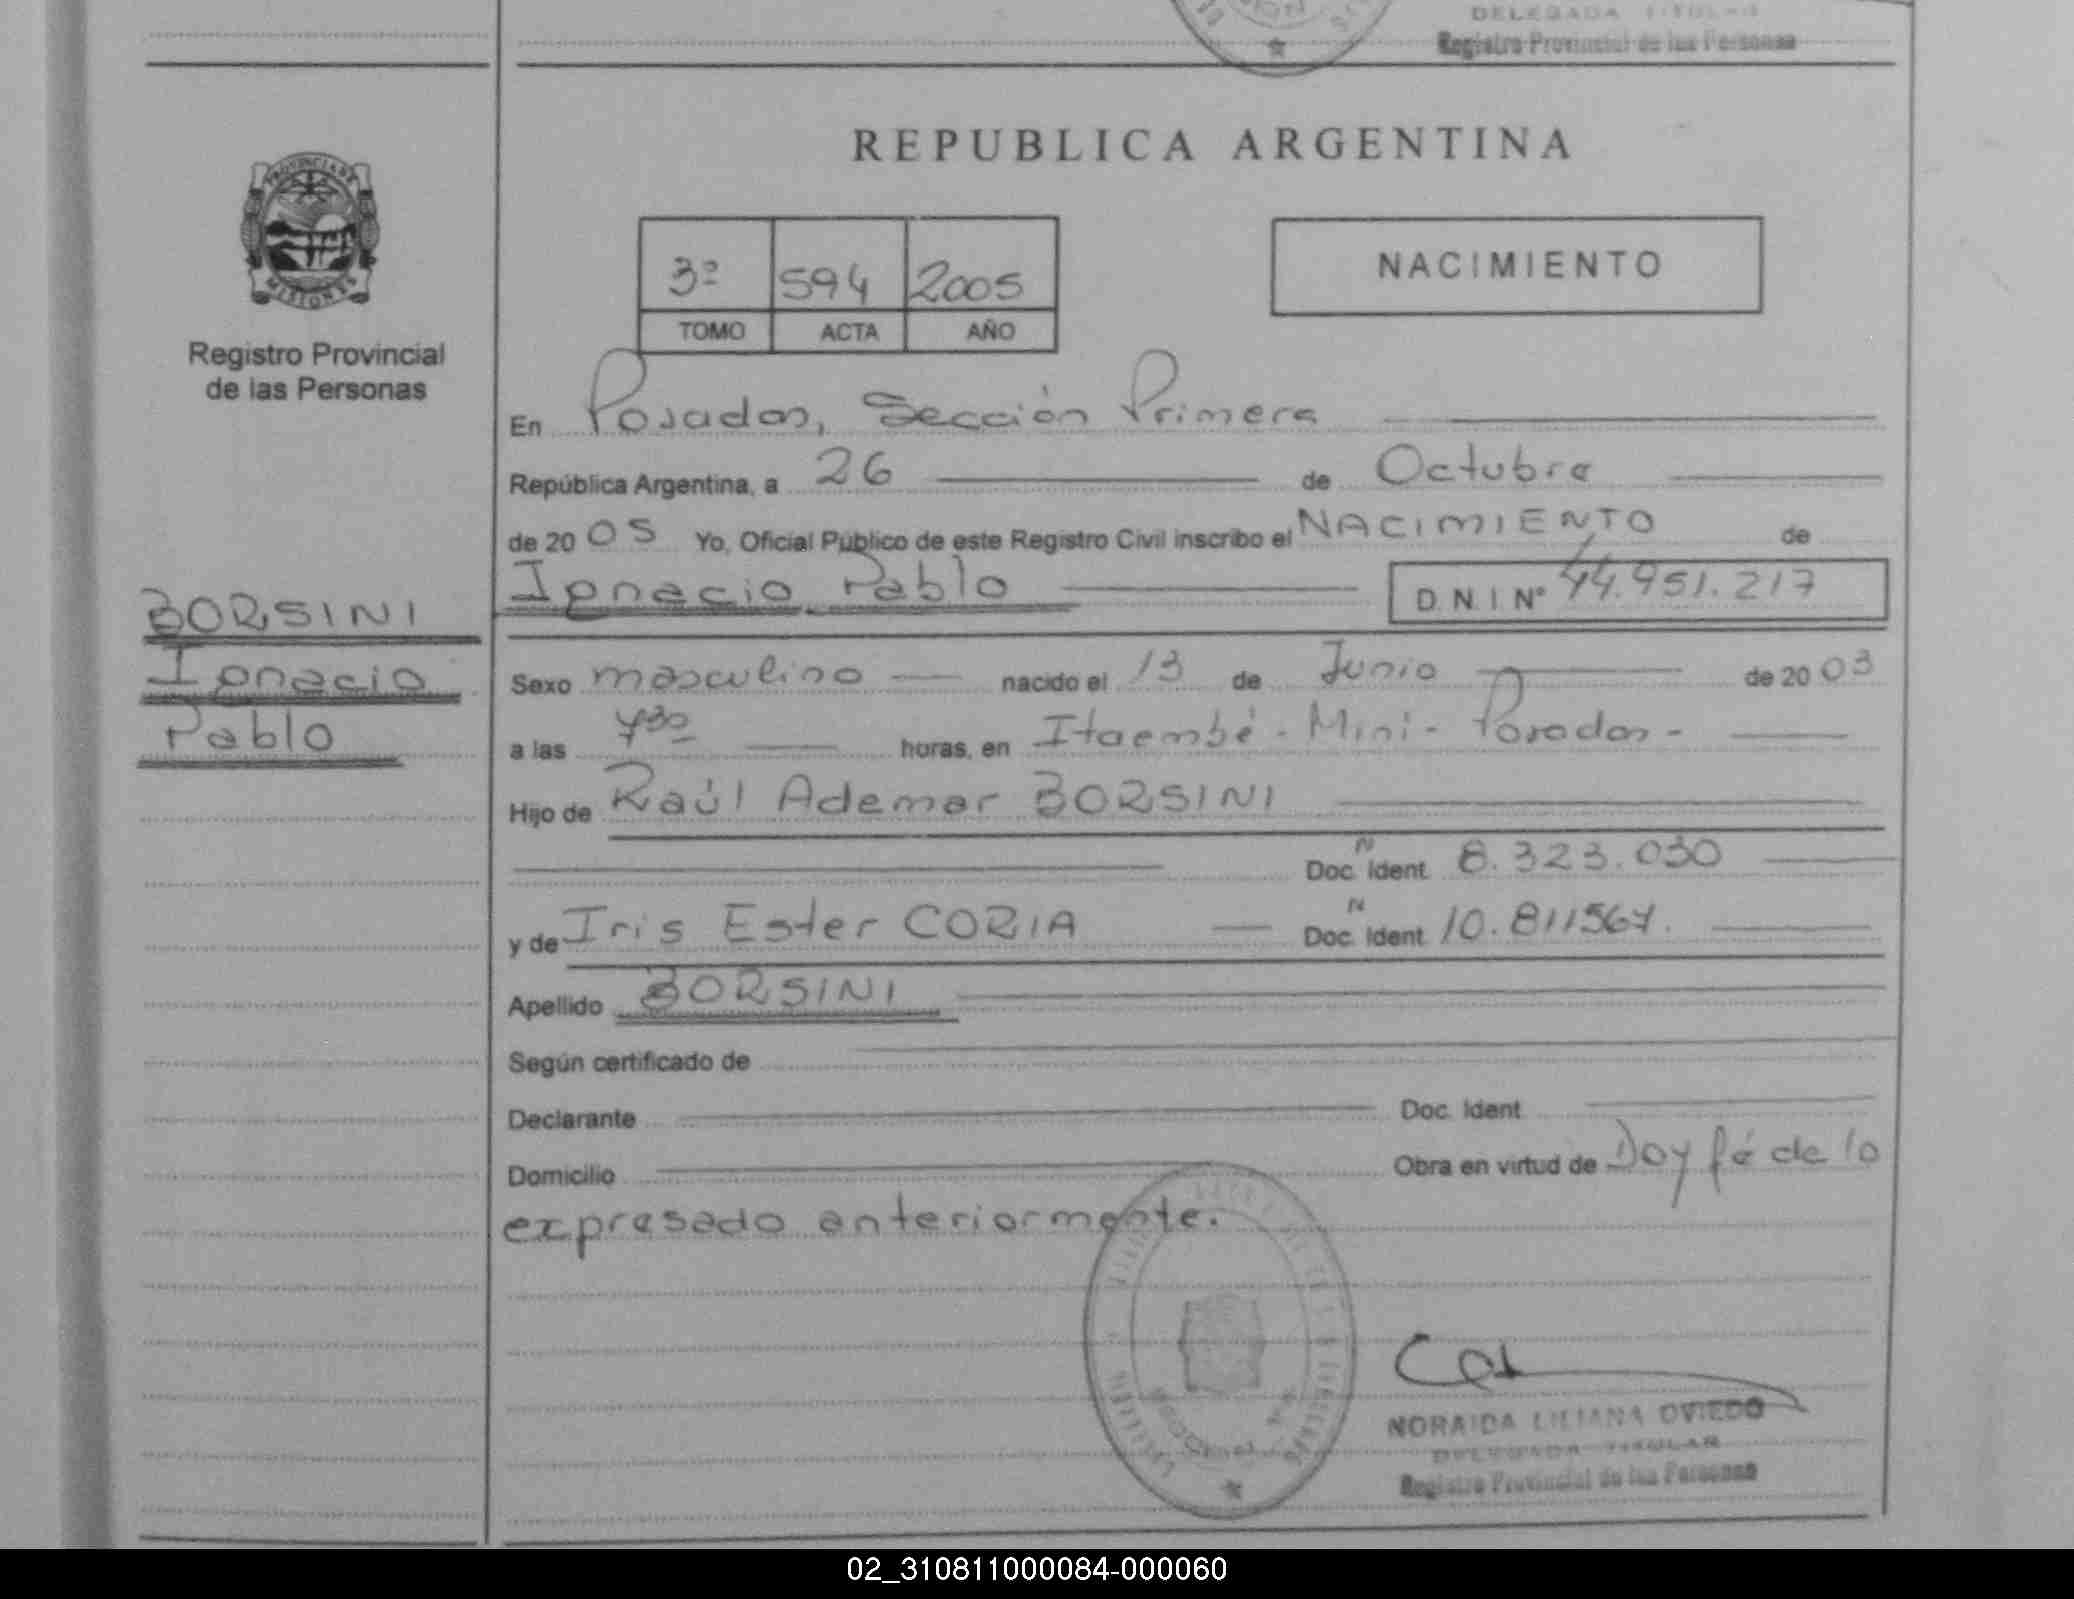 DELEGADA TITULAR
Registro Provincial de las Personas
PROVINCIA DE
MISIONES
Registro Provincial
de las Personas
REPUBLICA ARGENTINA
3º 594 2005
TOMO ACTA AÑO
NACIMIENTO
En Posadas, Sección Primera
República Argentina, a 26 de Octubre
de 20 05 Yo, Oficial Público de este Registro Civil inscribo el NACIMIENTO de
Ignacio Pablo D.N.I. Nº 44.951.217
BORSINI
Ignacio
Pablo
Sexo masculino nacido el 13 de Junio de 20 03
a las horas, en Itaembé - Mini - Posadas -
Hijo de Raúl Ademar BORSINI
N
Doc. Ident. 8.323.030
N
y de Iris Ester CORIA Doc. Ident. 10.811567.
Apellido BORSINI
Según certificado de
Declarante Doc. Ident
Domicilio Obra en virtud de Doy fé de lo
expresado anteriormente.
NORAIDA LILIANA OVIEDO
DELEGADA TITULAR
Registro Provincial de las Personas
02_310811000084-000060